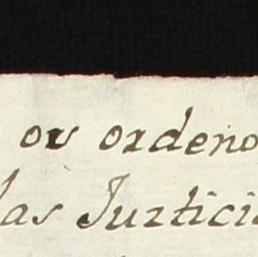 os ordeno
las Justici